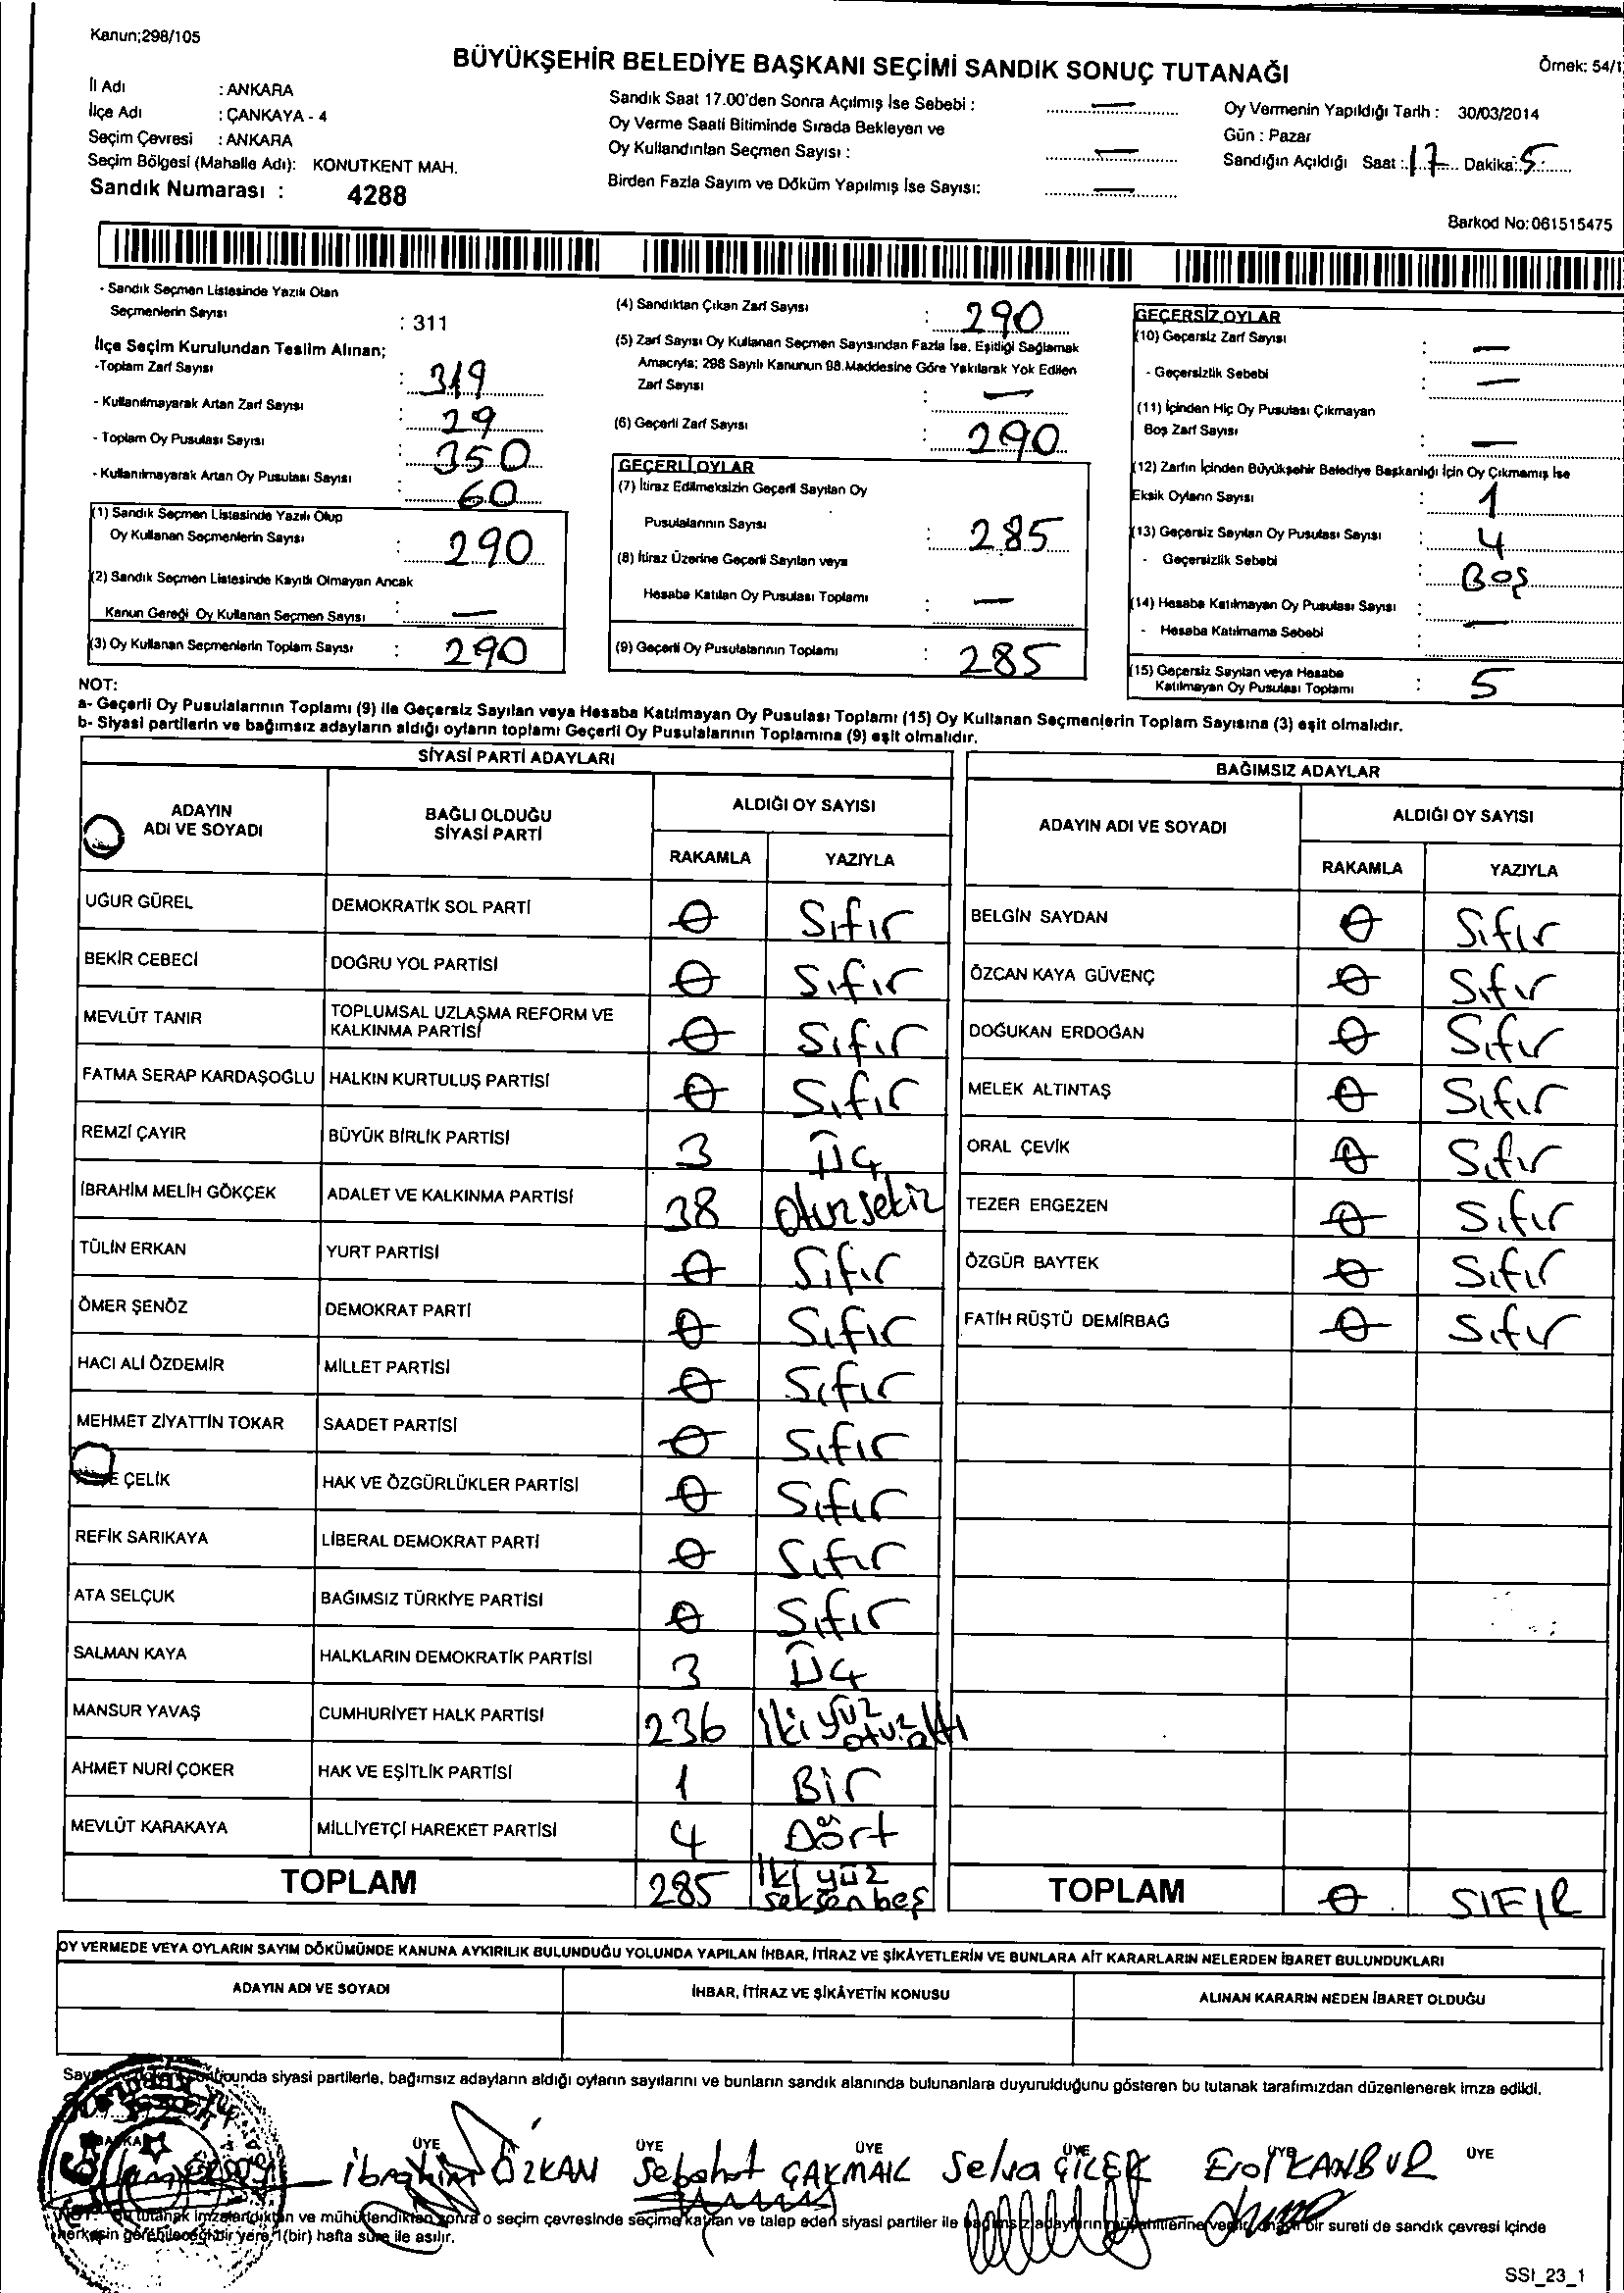 Kanun;298/105
BÜYÜKŞEHİR BELEDİYE BAŞKANI SEÇİMİ SANDIK SONUÇ TUTANAĞI
Örnek: 54/1
İl Adı : ANKARA
İlçe Adı : ÇANKAYA - 4
Seçim Çevresi : ANKARA
Seçim Bölgesi (Mahalle Adı): KONUTKENT MAH.
Sandık Numarası : 4288
Sandık Saat 17.00'den Sonra Açılmış İse Sebebi : —
Oy Verme Saati Bitiminde Sırada Bekleyen ve
Oy Kullandırılan Seçmen Sayısı : —
Birden Fazla Sayım ve Döküm Yapılmış İse Sayısı: —
Oy Vermenin Yapıldığı Tarih : 30/03/2014
Gün : Pazar
Sandığın Açıldığı Saat : 17 Dakika: 5
Barkod No:061515475
- Sandık Seçmen Listesinde Yazılı Olan
Seçmenlerin Sayısı : 311
İlçe Seçim Kurulundan Teslim Alınan;
-Toplam Zarf Sayısı : 319
- Kullanılmayarak Artan Zarf Sayısı : 29
- Toplam Oy Pusulası Sayısı : 350
- Kullanılmayarak Artan Oy Pusulası Sayısı : 60
(1) Sandık Seçmen Listesinde Yazılı Olup
Oy Kullanan Seçmenlerin Sayısı : 290
(2) Sandık Seçmen Listesinde Kayıtlı Olmayan Ancak
Kanun Gereği Oy Kullanan Seçmen Sayısı : —
(3) Oy Kullanan Seçmenlerin Toplam Sayısı : 290
(4) Sandıktan Çıkan Zarf Sayısı : 290
(5) Zarf Sayısı Oy Kullanan Seçmen Sayısından Fazla İse, Eşitliği Sağlamak
Amacıyla; 298 Sayılı Kanunun 98.Maddesine Göre Yakılarak Yok Edilen
Zarf Sayısı : —
(6) Geçerli Zarf Sayısı : 290
GEÇERLİ OYLAR
(7) İtiraz Edilmeksizin Geçerli Sayılan Oy
Pusulalarının Sayısı : 285
(8) İtiraz Üzerine Geçerli Sayılan veya
Hesaba Katılan Oy Pusulası Toplamı : —
(9) Geçerli Oy Pusulalarının Toplamı : 285
GEÇERSİZ OYLAR
(10) Geçersiz Zarf Sayısı : —
- Geçersizlik Sebebi : —
(11) İçinden Hiç Oy Pusulası Çıkmayan
Boş Zarf Sayısı : —
(12) Zarfın İçinden Büyükşehir Belediye Başkanlığı İçin Oy Çıkmamış İse
Eksik Oyların Sayısı : 1
(13) Geçersiz Sayılan Oy Pusulası Sayısı : 4
- Geçersizlik Sebebi : Boş
(14) Hesaba Katılmayan Oy Pusulası Sayısı : —
- Hesaba Katılmama Sebebi :
(15) Geçersiz Sayılan veya Hesaba
Katılmayan Oy Pusulası Toplamı : 5
NOT:
a- Geçerli Oy Pusulalarının Toplamı (9) ile Geçersiz Sayılan veya Hesaba Katılmayan Oy Pusulası Toplamı (15) Oy Kullanan Seçmenlerin Toplam Sayısına (3) eşit olmalıdır.
b- Siyasi partilerin ve bağımsız adayların aldığı oyların toplamı Geçerli Oy Pusulalarının Toplamına (9) eşit olmalıdır.
SİYASİ PARTİ ADAYLARI
ADAYIN ADI VE SOYADI
BAĞLI OLDUĞU SİYASİ PARTİ
ALDIĞI OY SAYISI
RAKAMLA YAZIYLA
UĞUR GÜREL DEMOKRATİK SOL PARTİ 0 Sıfır
BEKİR CEBECİ DOĞRU YOL PARTİSİ 0 Sıfır
MEVLÜT TANIR TOPLUMSAL UZLAŞMA REFORM VE KALKINMA PARTİSİ 0 Sıfır
FATMA SERAP KARDAŞOĞLU HALKIN KURTULUŞ PARTİSİ 0 Sıfır
REMZİ ÇAYIR BÜYÜK BİRLİK PARTİSİ 3 Üç
İBRAHİM MELİH GÖKÇEK ADALET VE KALKINMA PARTİSİ 38 Otuzsekiz
TÜLİN ERKAN YURT PARTİSİ 0 Sıfır
ÖMER ŞENÖZ DEMOKRAT PARTİ 0 Sıfır
HACI ALİ ÖZDEMİR MİLLET PARTİSİ 0 Sıfır
MEHMET ZİYATTİN TOKAR SAADET PARTİSİ 0 Sıfır
ÇELİK HAK VE ÖZGÜRLÜKLER PARTİSİ 0 Sıfır
REFİK SARIKAYA LİBERAL DEMOKRAT PARTİ 0 Sıfır
ATA SELÇUK BAĞIMSIZ TÜRKİYE PARTİSİ 0 Sıfır
SALMAN KAYA HALKLARIN DEMOKRATİK PARTİSİ 3 Üç
MANSUR YAVAŞ CUMHURİYET HALK PARTİSİ 236 İki yüz otuz altı
AHMET NURİ ÇOKER HAK VE EŞİTLİK PARTİSİ 1 Bir
MEVLÜT KARAKAYA MİLLİYETÇİ HAREKET PARTİSİ 4 Dört
TOPLAM 285 İki yüz seksen beş
BAĞIMSIZ ADAYLAR
ADAYIN ADI VE SOYADI
ALDIĞI OY SAYISI
RAKAMLA YAZIYLA
BELGİN SAYDAN 0 Sıfır
ÖZCAN KAYA GÜVENÇ 0 Sıfır
DOĞUKAN ERDOĞAN 0 Sıfır
MELEK ALTINTAŞ 0 Sıfır
ORAL ÇEVİK 0 Sıfır
TEZER ERGEZEN 0 Sıfır
ÖZGÜR BAYTEK 0 Sıfır
FATİH RÜŞTÜ DEMİRBAĞ 0 Sıfır
TOPLAM 0 SIFIR
OY VERMEDE VEYA OYLARIN SAYIM DÖKÜMÜNDE KANUNA AYKIRILIK BULUNDUĞU YOLUNDA YAPILAN İHBAR, İTİRAZ VE ŞİKÂYETLERİN VE BUNLARA AİT KARARLARIN NELERDEN İBARET BULUNDUKLARI
ADAYIN ADI VE SOYADI İHBAR, İTİRAZ VE ŞİKÂYETİN KONUSU ALINAN KARARIN NEDEN İBARET OLDUĞU
siyasi partilerle, bağımsız adayların aldığı oyların sayılarını ve bunların sandık alanında bulunanlara duyurulduğunu gösteren bu tutanak tarafımızdan düzenlenerek imza edildi.
ÜYE ÜYE ÜYE ÜYE ÜYE ÜYE
İbrahim ÖZKAN Sebahat ÇAKMAK Selva ÇİÇEK Erol KANBUR
Bu tutanak imzalandıktan ve mühürlendikten sonra o seçim çevresinde seçime katılan ve talep eden siyasi partiler ile bağımsız adayların bir sureti de sandık çevresi içinde
herkesin görebileceği bir yere 1(bir) hafta süre ile asılır.
SSI_23_1